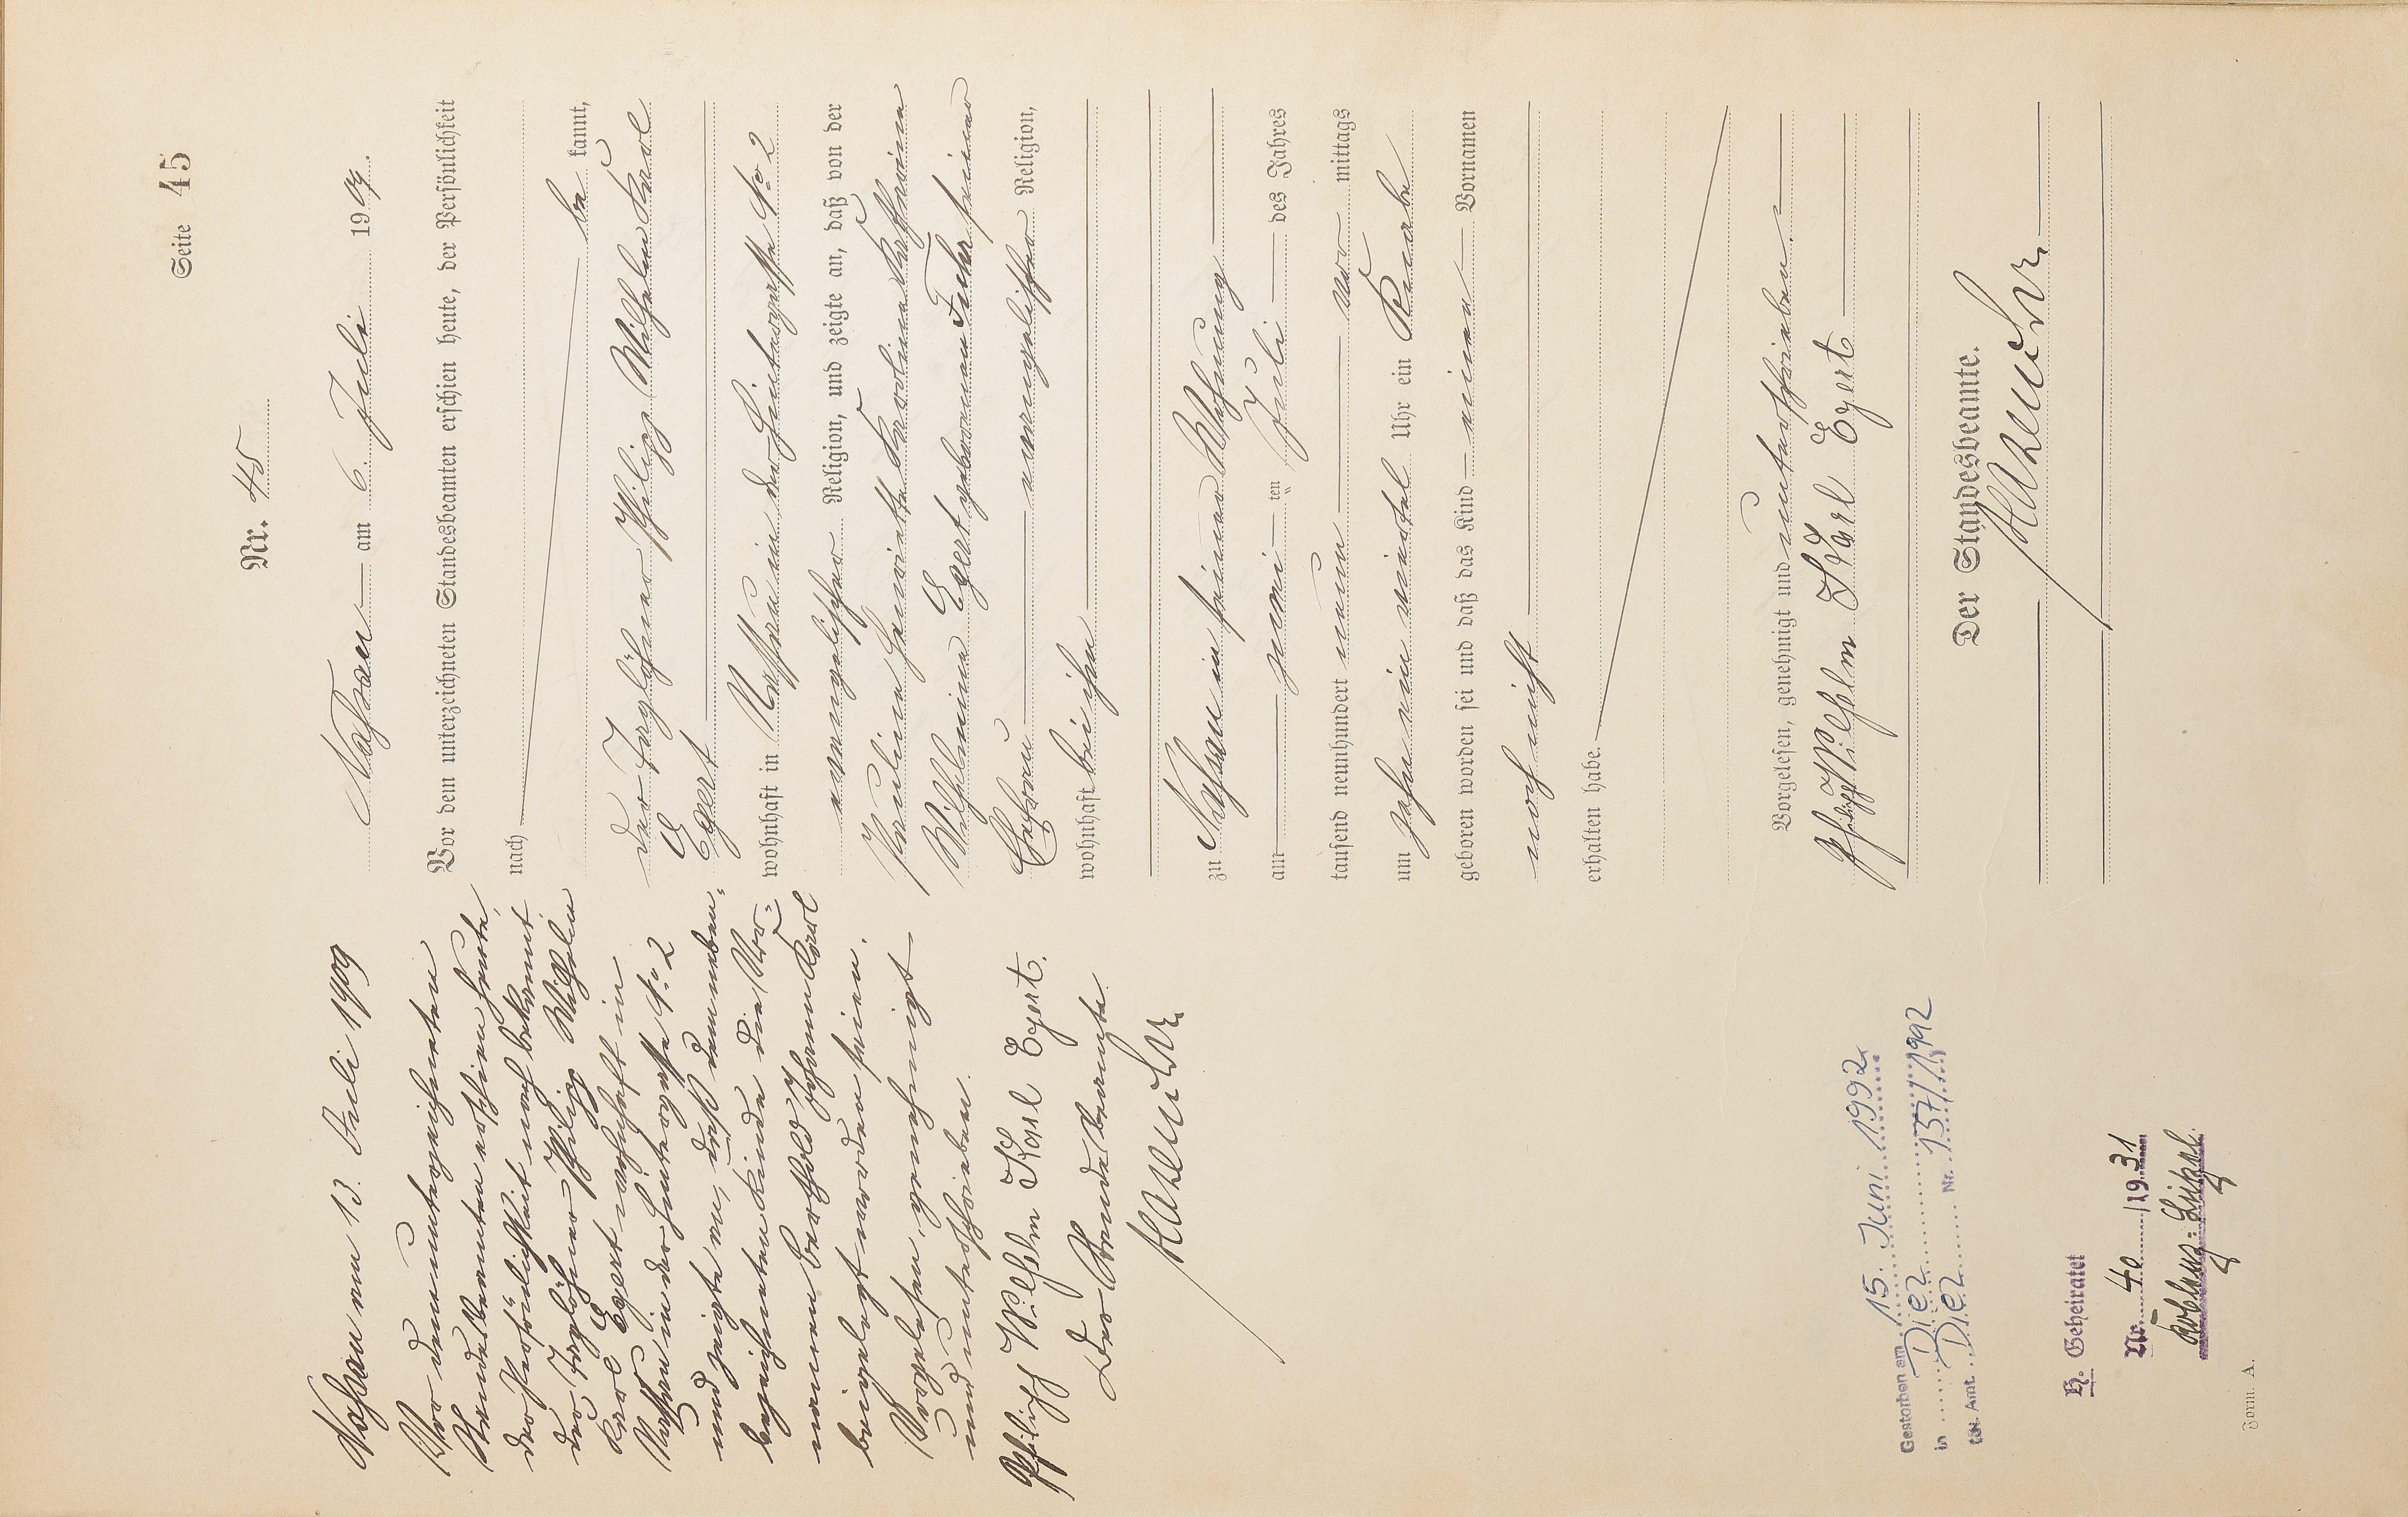 Seite 45
Nr. 45
Nassau am 6. Juli 1909.
Vor dem unterzeichneten Standesbeamten erschien heute, der Persönlichkeit
nach
be kannt,
der Taglöhner Philipp Wilhelm Karl
Egert
wohnhaft in Nassau in der Hintergasse No 2
evangelischer Religion, und zeigte an, daß von der
Pauline Henriette Karoline Katharina
Wilhelmine Egert geborenen Fuhr seiner
Ehefrau evangelischer Religion,
wohnhaft bei ihm
zu Nassau in seiner Wohnung
am zwei ten Juli des Jahres
tausend neunhundert neun vor mittags
um zehn ein viertel Uhr ein Knabe
geboren worden sei und daß das Kind einen Vornamen
noch nicht
erhalten habe.
Vorgelesen, genehmigt und unterschrieben.
Philipp Wilhelm Karl Egert
Der Standesbeamte.
Nassau am 13. Juli 1909
Vor dem unterzeichneten
Standesbeamten erschien heute,
der Persönlichkeit nach bekannt
der Taglöhner Philipp Wilhelm
Karl Egert wohnhaft in
Nassau in der Hintergasse No 2
und zeigte an, daß dem neben=
bezeichneten Kinde die Vor=
namen Berthold Johann Karl
beigelegt worden seien.
Vorgelesen, genehmigt
und unterschrieben.
Philipp Wilhelm Karl Egert.
Der Standesbeamte
Gestorben am 15. Juni 1992
in Diez
Sta. Amt. Diez Nr. 137/1992
H. Geheiratet
Nr. 40 1931
Koblenz=Lützel
Form. A.